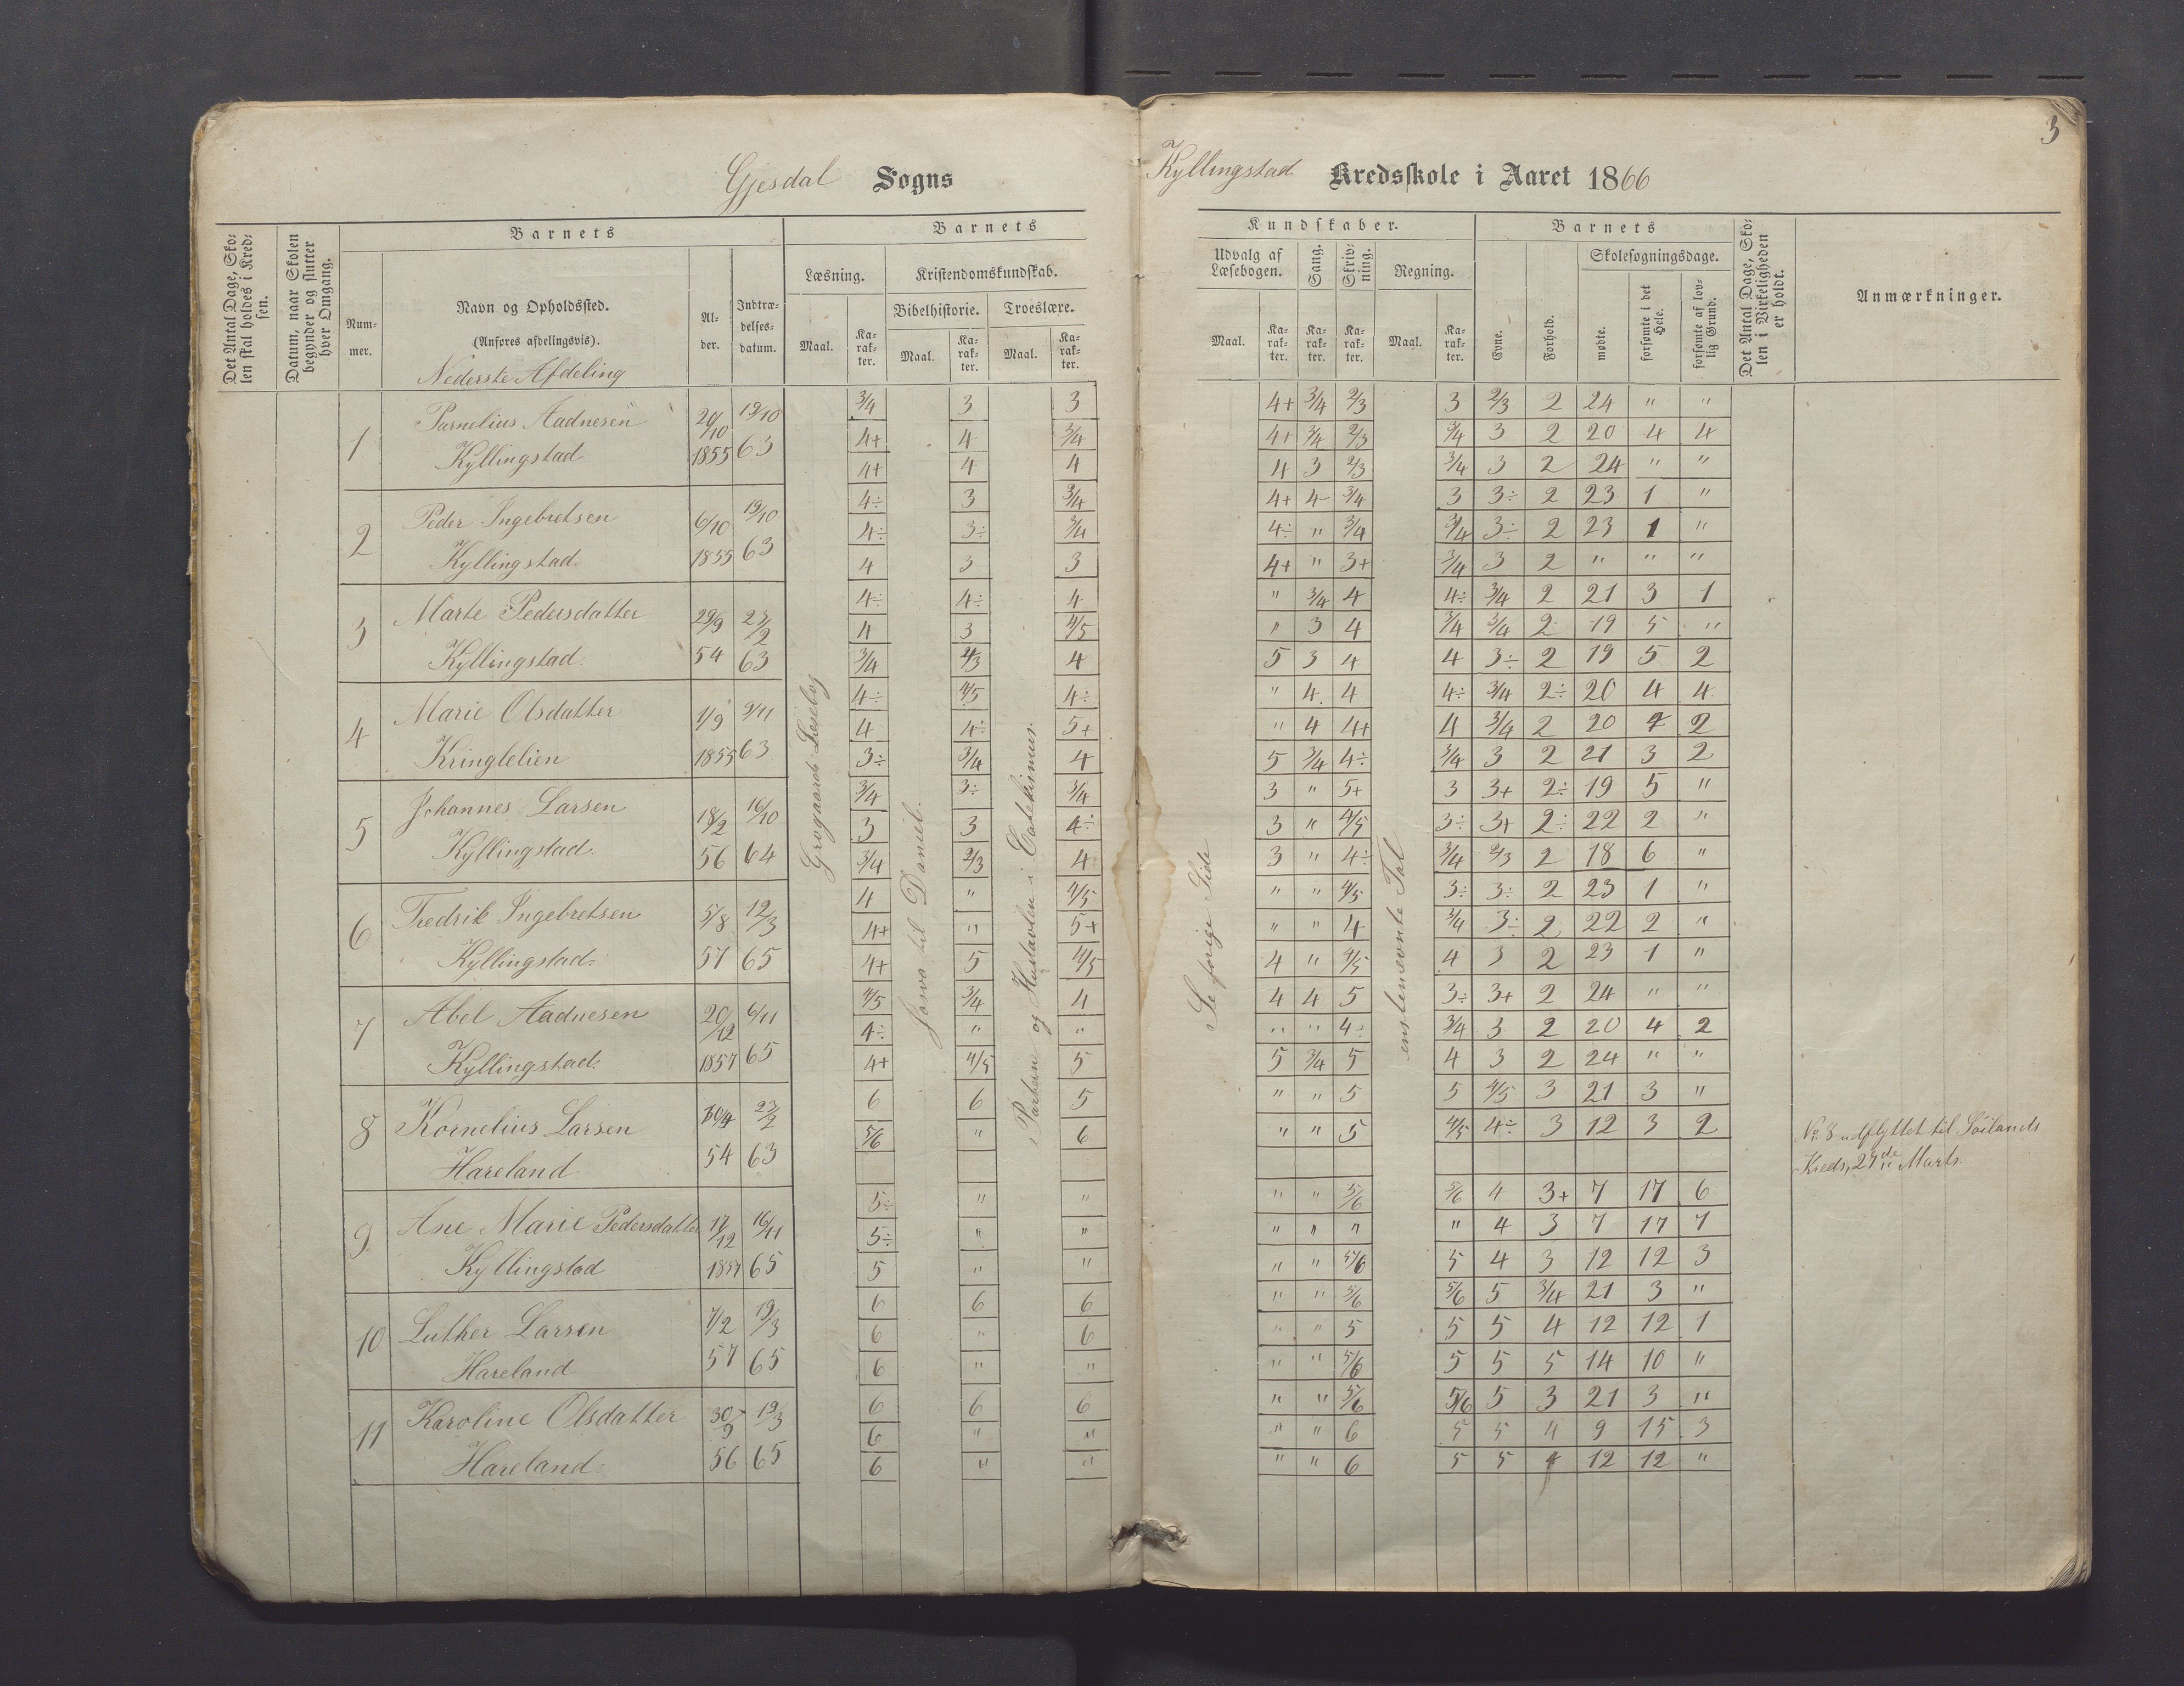 3
Gjesdal Sogns
Kyllingstad Kredsskole i Aaret 1866
Det Antal Dage, Skolen skal holdes i Kredsen.
Datum, naar Skolen begynder og slutter hver Omgang.
Barnets
Nummer.
Navn og Opholdssted.
(Anføres afdelingsvis).
Nederste Afdeling
Alder.
Indtrædelsesdatum.
Barnets Kundskaber.
Læsning.
Kristendomskundskab.
Bibelhistorie. Troeslære.
Maal. Karakter. Maal. Karakter. Maal. Karakter.
Udvalg af Læsebogen. Sang. Skrivning. Regning.
Maal. Karakter. Karakter. Karakter. Maal. Karakter.
Barnets
Evne. Forhold.
Skolesøgningsdage.
mødte. forsømte i det Hele. forsømte af lovlig Grund.
Det Antal Dage, Skolen i Virkeligheden er holdt.
Anmærkninger.
Grogaards Læsebog
Josva til Daniel.
Se forige Side
ensbenævnte Tal
1 Aadnesen 20/10 19/10
Kyllingstad 1855 63
3/4 3 3 4+ 3/4 2/3 3 2/3 2 24 " "
4+ 4 3/4 4+ 3/4 2/3 3/4 3 2 20 4 4
4+ 4 4 4 3 2/3 3/4 3 2 24 " "
2 Peder Ingebretsen 6/10 19/10
Kyllingstad 1855 63
4÷ 3 3/4 4+ 4 3/4 3 3÷ 2 23 1 "
4÷ 3÷ 3/4 4÷ " 3/4 3/4 3÷ 2 23 1 "
4 3 3 4+ " 3+ 3/4 3 2 " " "
3 Marte Pedersdatter 29/9 23/2
Kyllingstad. 54 63
4÷ 4÷ 4 " 3/4 4 4÷ 3/4 2 21 3 1
4 3 4/5 " 3 4 3/4 3/4 2 19 5 "
3/4 2/3 4 5 3 4 4 3÷ 2 19 5 2
4 Marie Olsdatter 1/9 9/11
Kringlelien 1855 63
4÷ 4/5 4÷ " 4 4 4÷ 3/4 2÷ 20 4 4
4 4÷ 5+ " 4 4+ 4 3/4 2 20 4 2
3÷ 3/4 4 5 3/4 4÷ 3/4 3 2 21 3 2
5 Johannes Larsen 18/2 16/10
Kyllingstad. 56 64
3/4 3÷ 3/4 3 " 5+ 3 3+ 2÷ 19 5 "
3 3 4÷ 3 " 4/5 3÷ 3+ 2÷ 22 2 "
3/4 2/3 4 3 " 4÷ 3/4 2/3 2 18 6 "
6 Fredrik Ingebretsen 5/8 12/3
Kyllingstad. 57 65
4 " 4/5 " " 4/5 3÷ 3÷ 2 23 1 "
4+ " 5+ " " 4 3/4 3÷ 2 22 2 "
4+ 5 4/5 4 " 4/5 4 3 2 23 1 "
7 Abel Aadnesen 20/12 6/11
Kyllingstad. 1857 65
4/5 3/4 4 4 4 5 3÷ 3+ 2 24 " "
4÷ " " " " 4÷ 3/4 3 2 20 4 2
4+ 4/5 5 5 3/4 5 4 3 2 24 " "
8 Kornelius Larsen 30/4 23/2
Hareland 54 63
6 6 5 " " 5 5 4/5 3 21 3 "
5/6 " 6 " " 5 4/5 4÷ 3 12 3 2
No. 8 udflyttet til Søilands
Kreds, 27de Marts.
9 Ane Marie Pedersdatter 17/12 16/11
Kyllingstad 1857 65
5÷ " " " " 5/6 5/6 4 3+ 7 17 6
5÷ " " " " " " 4 3 7 17 7
5 " " " " 5/6 5 4 3 12 12 3
10 Luther Larsen 7/2 19/3
Hareland 57 65
6 6 6 " " 5/6 5/6 5 3/4 21 3 "
6 " 6 " " 5 5 5 4 12 12 1
6 " " " " 5/6 5 5 5 14 10 "
11 Karoline Olsdatter 30/9 19/3
Hareland 56 65
6 6 6 " " 5/6 5/6 5 3 21 3 "
6 " " " " 6 5 5 4 9 15 3
6 " " " " 6 5 5 4 12 12 "